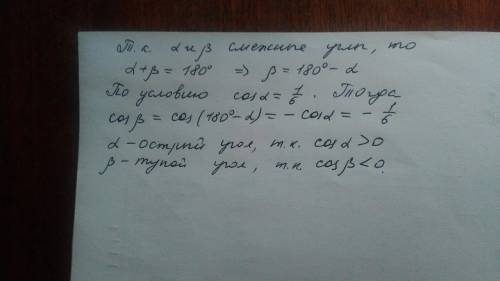 Т.к. α и β смежные углы, то
α+β = 180° => β = 180° - α
По условию cosα = 1/6. Тогда
cosβ = cos(180° - α) = - cosα = - 1/6
α - острый угол, т.к. cosα > 0
β - тупой угол, т.к. cosβ < 0.